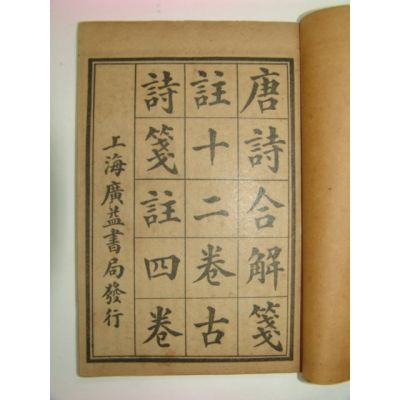 唐詩合解箋
註十二卷古
詩箋註四卷
上海廣益書局發行